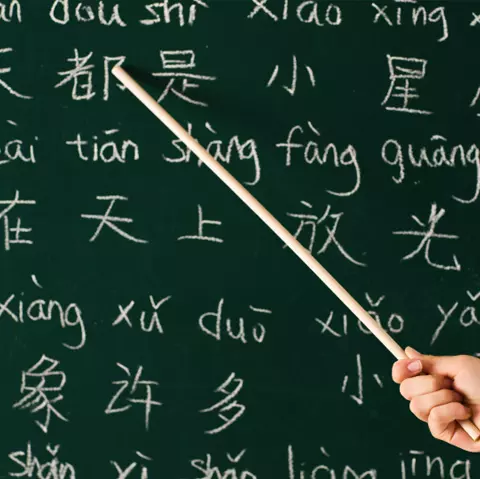 an dou shì xiao xīng
天 都 是 小 星
ài tiān shàng fàng guāng
在 天 上 放 光
xiàng xǔ duō xiǎo yǎ
象 许 多 小
shǎn yì shǎn liàng jīng